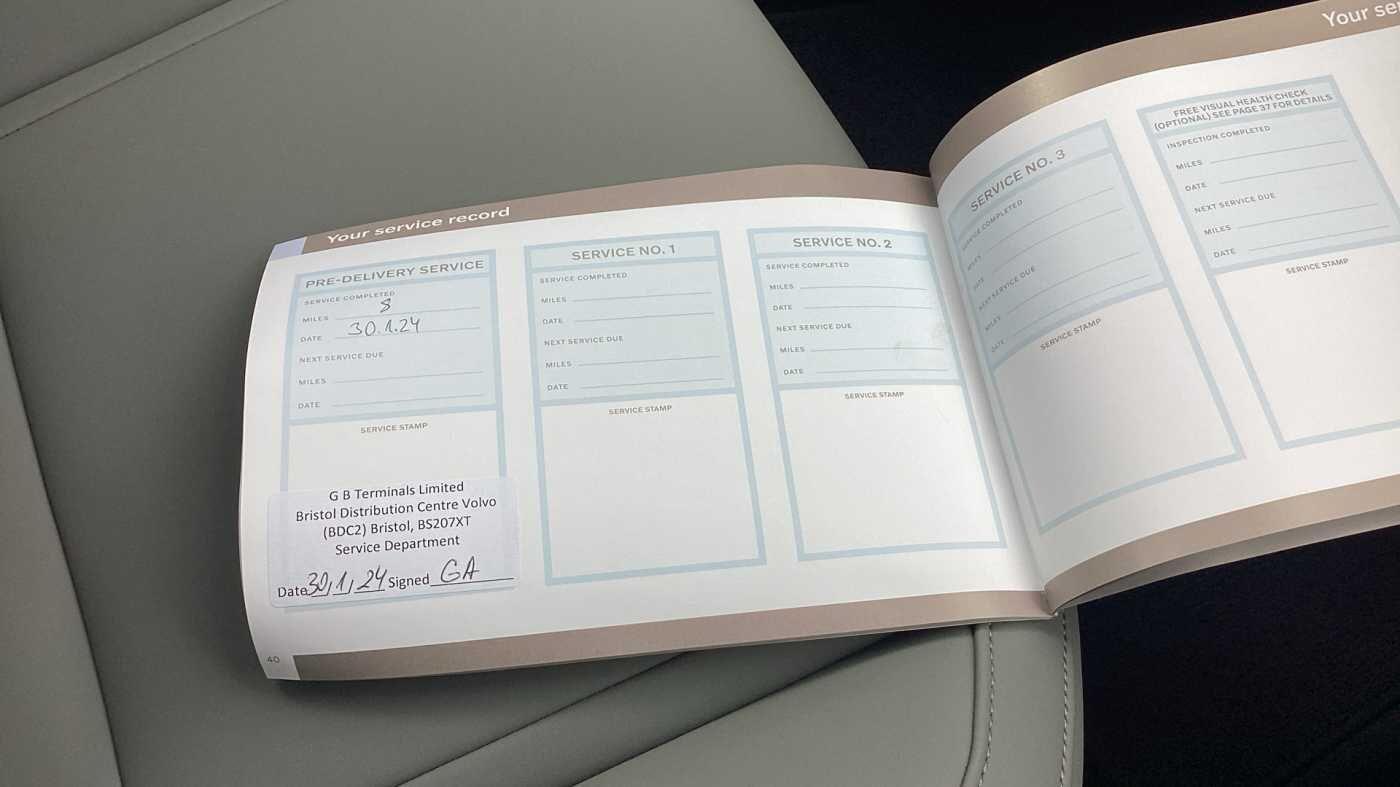 Your service record
PRE-DELIVERY SERVICE
SERVICE COMPLETED
MILES 8
DATE 30.1.24
NEXT SERVICE DUE
MILES
DATE
SERVICE STAMP
G B Terminals Limited
Bristol Distribution Centre Volvo
(BDC2) Bristol, BS207XT
Service Department
Date 30/1/24 Signed GA
40
SERVICE NO. 1
SERVICE COMPLETED
MILES
DATE
NEXT SERVICE DUE
MILES
DATE
SERVICE STAMP
SERVICE NO. 2
SERVICE COMPLETED
MILES
DATE
NEXT SERVICE DUE
MILES
DATE
SERVICE STAMP
Your se
SERVICE NO. 3
SERVICE COMPLETED
MILES
DATE
NEXT SERVICE DUE
MILES
DATE
SERVICE STAMP
FREE VISUAL HEALTH CHECK
(OPTIONAL) SEE PAGE 37 FOR DETAILS
INSPECTION COMPLETED
MILES
DATE
NEXT SERVICE DUE
MILES
DATE
SERVICE STAMP